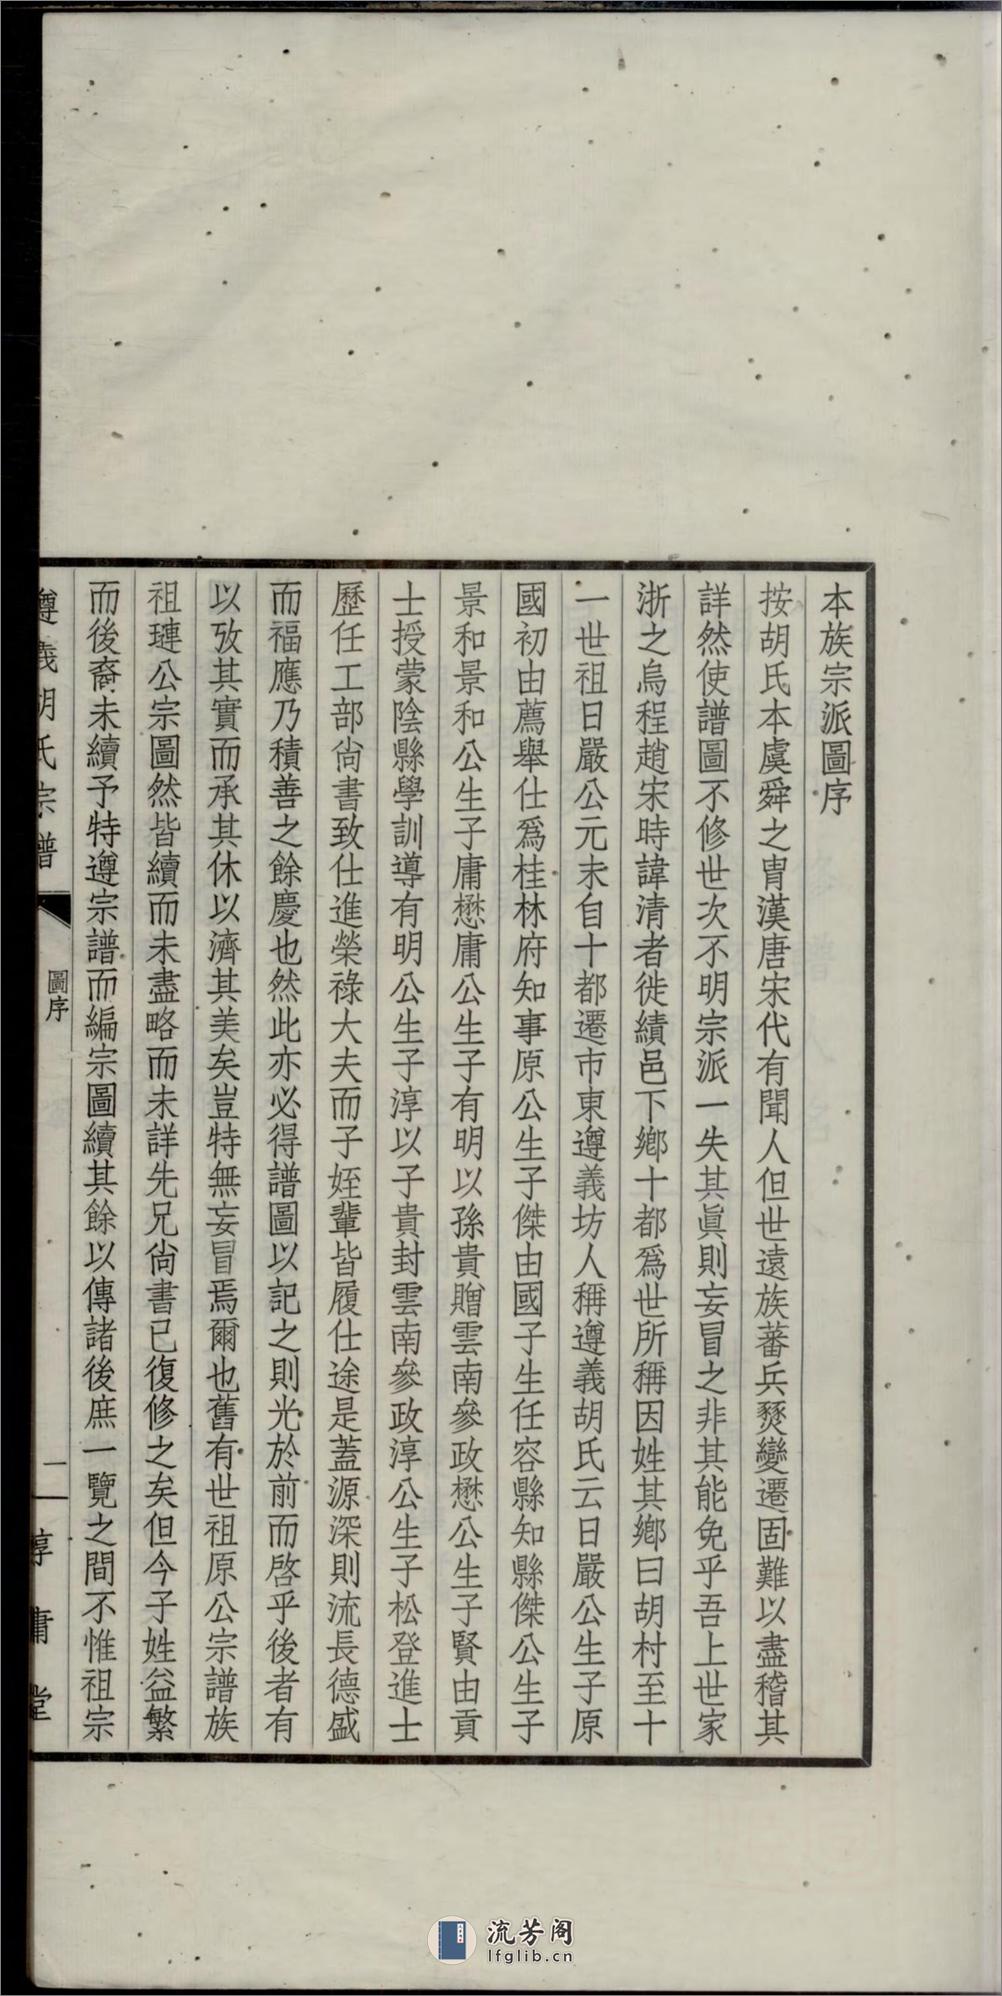 本族宗派圖序
按胡氏本虞舜之胄漢唐宋代有聞人但世遠族蕃兵燹變遷固難以盡稽其
詳然使譜圖不修世次不明宗派一失其眞則妄冒之非其能免乎吾上世家
浙之烏程趙宋時諱清者徙績邑下鄉十都爲世所稱因姓其鄉曰胡村至十
一世祖日嚴公元末自十都遷市東遵義坊人稱遵義胡氏云日嚴公生子原
國初由薦舉仕爲桂林府知事原公生子傑由國子生任容縣知縣傑公生子
景和景和公生子庸懋庸公生子有明以孫貴贈雲南參政懋公生子賢由貢
士授蒙陰縣學訓導有明公生子淳以子貴封雲南參政淳公生子松登進士
歷任工部尙書致仕進榮祿大夫而子姪輩皆履仕途是蓋源深則流長德盛
而福應乃積善之餘慶也然此亦必得譜圖以記之則光於前而啓乎後者有
以攷其實而承其休以濟其美矣豈特無妄冒焉爾也舊有世祖原公宗譜族
祖璉公宗圖然皆續而未盡略而未詳先兄尙書已復修之矣但今子姓益繁
而後裔未續予特遵宗譜而編宗圖續其餘以傳諸後庶一覽之間不惟祖宗
遵義胡氏宗譜
圖序
二
惇庸堂
流芳阁
lfglib.cn